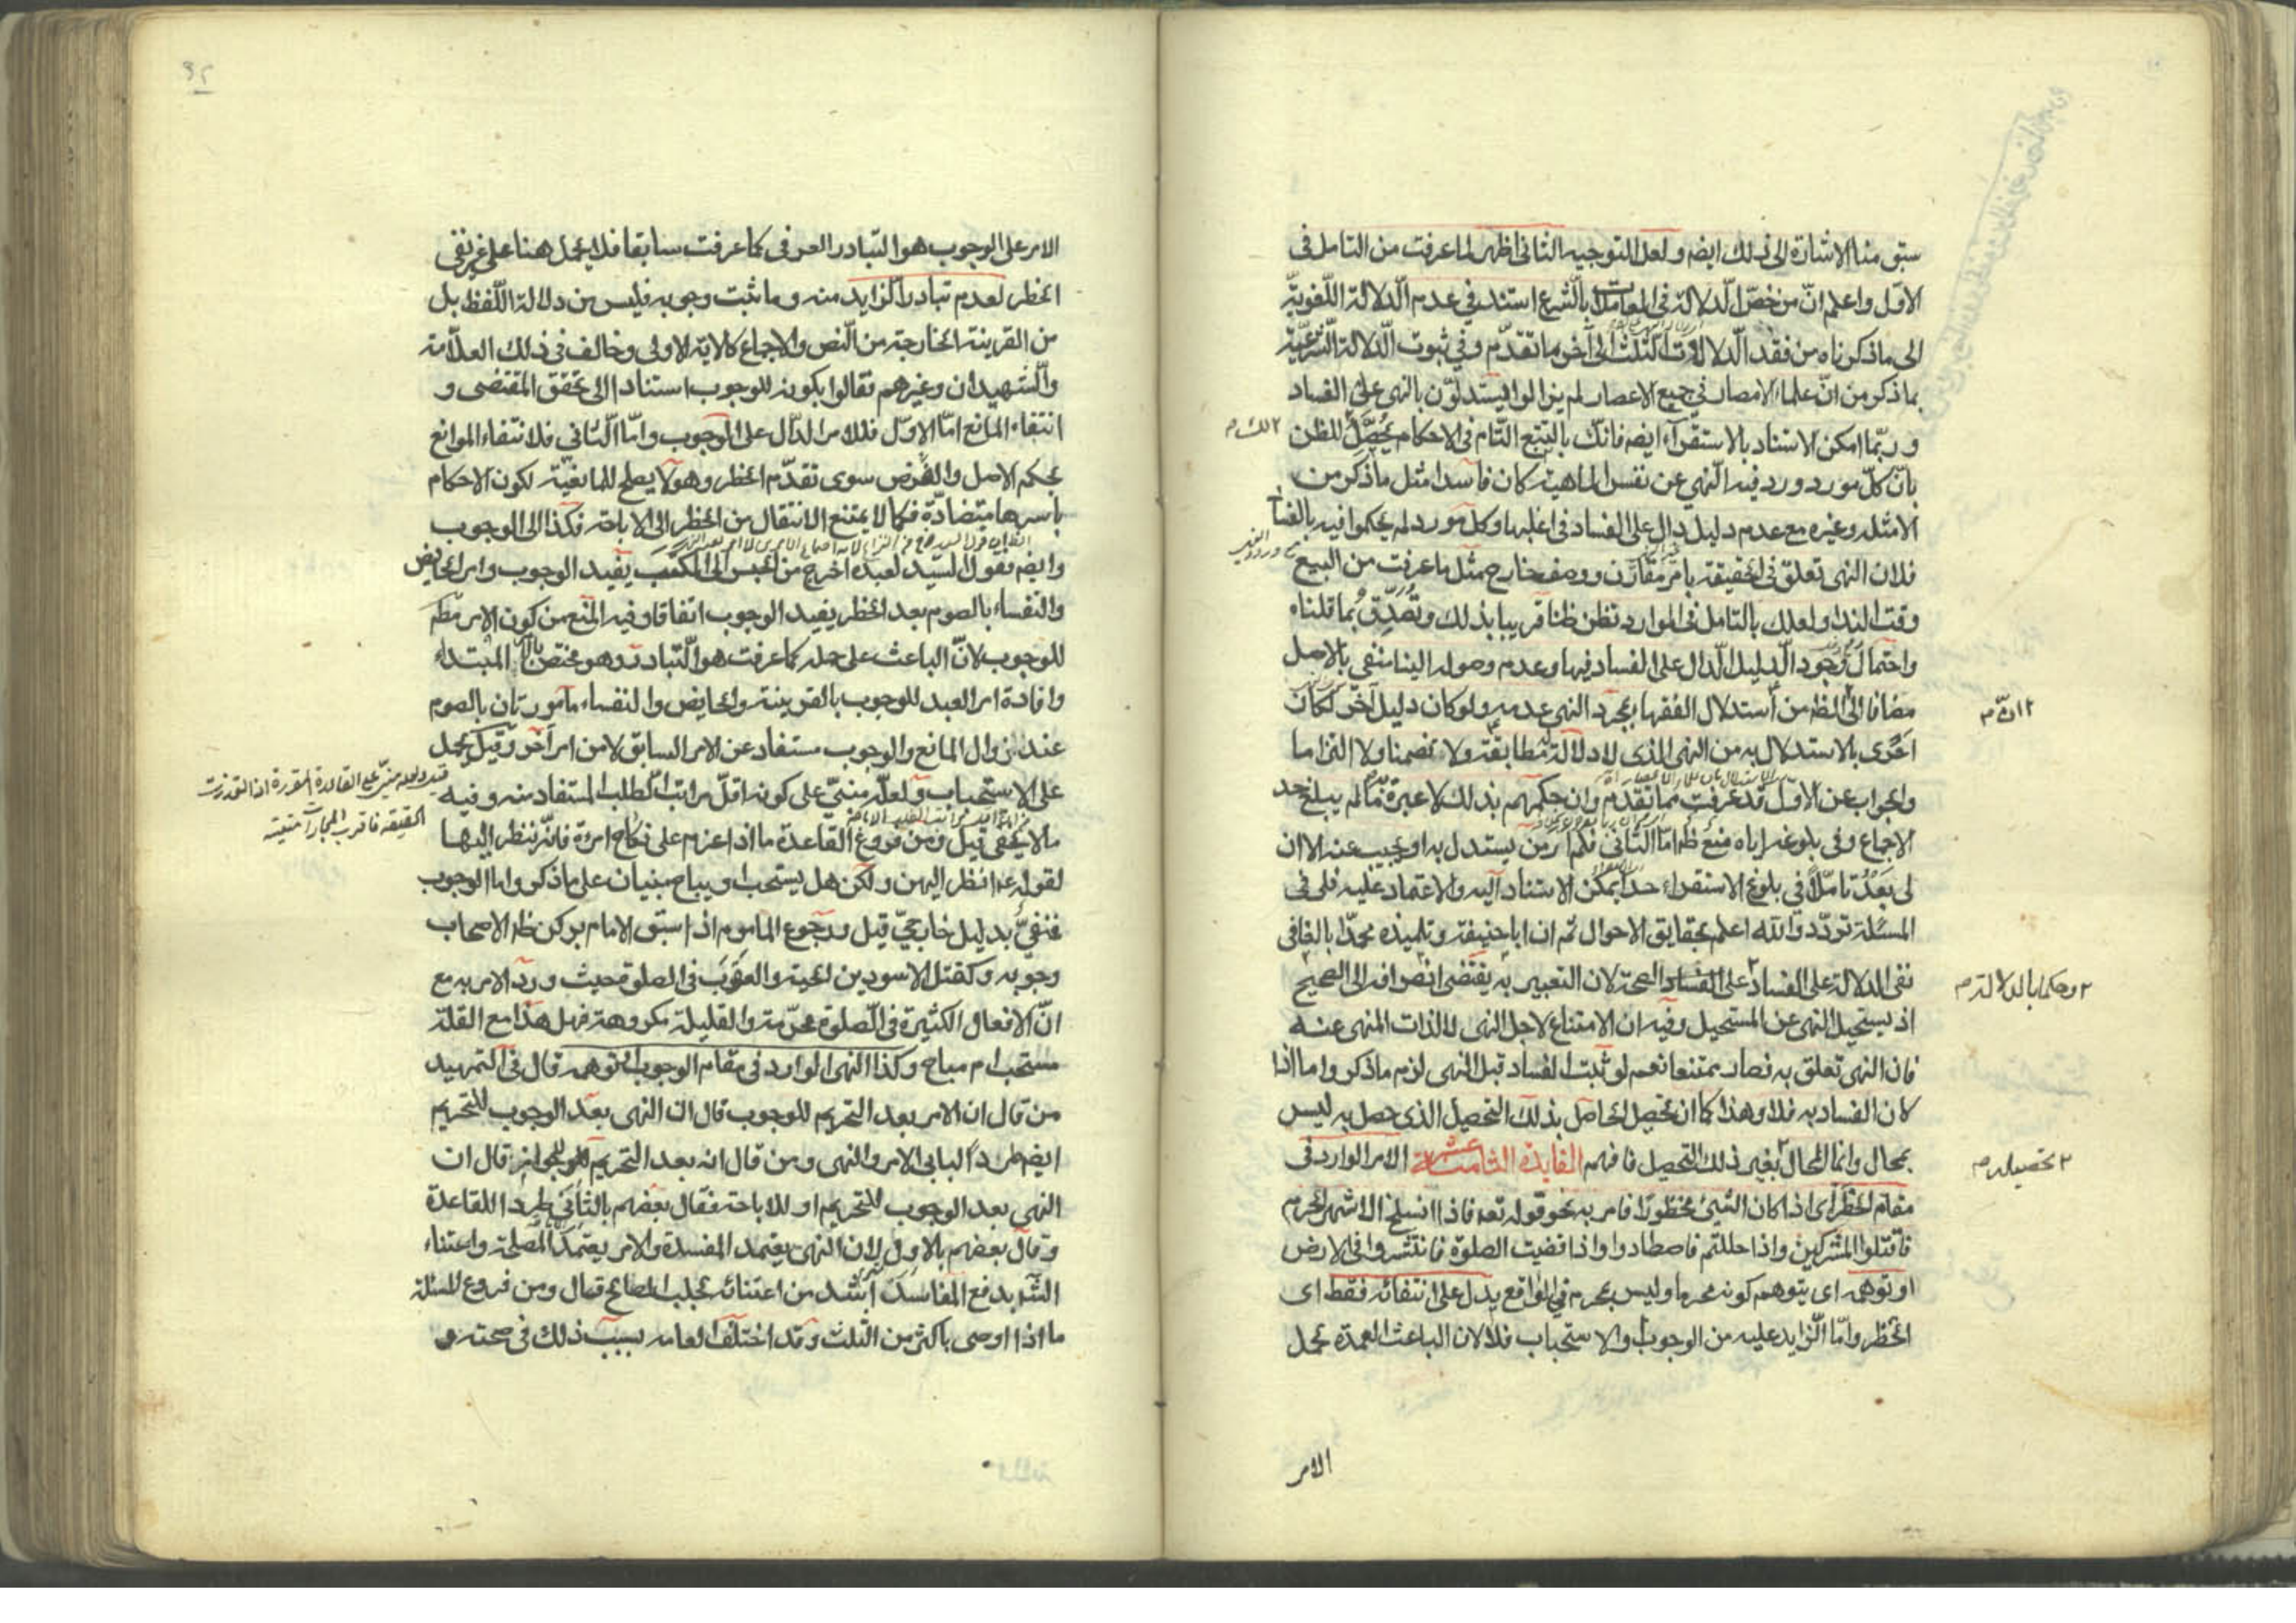 سبق منا الاشارة الى ذلك ايضه ولعل التوجيه الثانى اظهر لما عرفت من التامل فى
الاوّل واعلم انّ من خصّ الدلالة فى المعاملات بالشرع استند فى عدم الدلالة اللغويّة
الى ما ذكرناه من فقد الدلالات الثلث الى آخر ما تقدّم وفى ثبوت الدلالة الشرعيّة
بما ذكر من انّ علماء الامصار فى جميع الاعصار لم يزالوا يستدلوّن بالنهى على الفساد
وربّما امكن الاستناد بالاستقرآء ايضه فانّك بالتتبّع التّام فى الاحكام يحصّل الظن
بانّ كلّ مورد ورد فيه النّهى عن نفس الماهية كان فاسدا مثل ما ذكر من
الامثله وغيره مع عدم دليل دال على الفساد فى اغلبها وكل مورد لم يحكموا فيه بالفساد
فلان النهى تعلق فى الحقيقة بامر مقارن ووصف خارج مثل ما عرفت من البيع
وقت الندا ولعلك بالتامل فى الموارد تظن ظنا قريبا بذلك وتصدّق بما قلناه
واحتمال وجود الدليل الدال على الفساد فيها وعدم وصوله الينا منفى بالاصل
مضافا الى الظ من استدلال الفقها بمجرد النهى عدمه ولو كان دليل آخر لكان
احرى بالاستدلال به من النهى الذى لا دلالة له مطابقة ولا تضمنا ولا التزاما
والجواب عن الاول قد عرفت مما تقدم وان حكمهم بذلك لا عبرة به ما لم يبلغ حد
الاجماع وفى بلوغه اياه منع ظ امّا الثانى فلم ار من يستدل به او يجيب عنه الا ان
لى بعد تاملا فى بلوغ الاستقراء حدا يمكن الاستناد اليه والاعتماد عليه فلى فى
المسئلة تردّد والله اعلم بحقايق الاحوال ثم ان ابا حنيفة وتلميذه محمدا بالغا فى
نفى الدلالة على الفساد على الفساد الصحة لان التعبير به يقتضى انصرافه الى الصحيح
اذ يستحيل النهى عن المستحيل وفيه ان الامتناع لاجل النهى لا لذات المنهى عنه
فان النهى تعلق به فصار ممتنعا نعم لو ثبت الفساد قبل النهى لزم ما ذكر واما اذا
كان الفساد به فلا وهذا كما ان تحصيل الحاصل بذلك التحصيل الذى حصل به ليس
بمحال وانما المحال بغير ذلك التحصيل فافهم الفايدة الثامنة عشر الامر الوارد فى
مقام الحظر اى اذا كان الشئ محظورا فامر به نحو قوله تعه فاذا انسلخ الاشهر الحرم
فاقتلوا المشركين واذا حللتم فاصطادوا واذا قضيت الصلوة فانتشروا فى الارض
او توهمه اى يتوهم كونه محرما وليس بمحرم فى الواقع يدل على انتفائه فقط اى
الحظر وامّا الزايد عليه من الوجوب والاستحباب فلا لان الباعث العمدة بحمل
٢ ان م
٢ وحكما بالدلالة م
٢ تحصيله م
الامر
الامر على الوجوب هو التبادر العرفى كما عرفت سابقا فلا يحمل هنا على غير نفى
الحظر لعدم تبادر الزايد منه وما ثبت وجوبه فليس من دلالة اللّفظ بل
من القرينة الخارجة من النص والاجماع كالاية الاولى وخالف فى ذلك العلاّمة
والشهيدان وغيرهم فقالوا بكونه للوجوب استنادا الى تحقق المقتضى و
انتفاء المانع امّا الاوّل فللامر الدّال على الوجوب وامّا الثانى فلانتفاء الموانع
بحكم الاصل والفرض سوى تقدّم الحظر وهو لا يصلح للمانعيّة لكون الاحكام
باسرها متضادّة فكما لا يمتنع الانتقال من الحظر الى الاباحة فكذا الى الوجوب
وايضه فقول السيّد لعبده اخرج من الحبس الى المكتب يفيد الوجوب وامر الحايض
والنفساء بالصوم بعد الحظر يفيد الوجوب اتفاقا وفيه المنع من كون الامر مطم
للوجوب لانّ الباعث على حمله كما عرفت هو التّبادر وهو مختص بالامر المبتداء
وافادة امر العبد للوجوب بالقرينة والحايض والنفساء مامورتان بالصوم
عند زوال المانع والوجوب مستفاد عن الامر السابق لا من امر آخر وقيل يحمل
على الاستحباب ولعلّه مبنىّ على كونه اقلّ مراتب الطلب المستفاد منه وفيه
ما لا يخفى قيل ومن فروع القاعدة ما اذا عزم على نكاح امرءة فانّه ينظر اليها
لقوله عه انظر اليهن ولكن هل يستحب او يباح مبنيان على ما ذكر واما الوجوب
فنفىّ بدليل خارجىّ قيل ورجوع الماموم اذا سبق الامام بركن ظ الاصحاب
وجوبه وكقتل الاسودين الحية والعقرب فى الصلوة حيث ورد الامر به مع
انّ الافعال الكثيرة فى الصلوة محرّمة والقليلة مكروهة فهل هذا مع القلة
مستحب ام مباح وكذا النهى الوارد فى مقام الوجوب او توهمه قال فى التمهيد
من قال ان الامر بعد التحريم للوجوب قال ان النهى بعد الوجوب للتحريم
ايضه طردا لبابى الامر والنهى ومن قال انه بعد التحريم للجواز قال ان
النهى بعد الوجوب للتحريم او للاباحة فقال بعضهم بالثانى طردا للقاعدة
وقال بعضهم بالاول لان النهى يعتمد المفسدة والامر يعتمد المصلحة واعتناء
الشرع بدفع المفاسد اشد من اعتنائه بجلب المصالح قال ومن فروع المسئلة
ما اذا اوصى باكثر من الثلث وقد اختلف العامه بسبب ذلك فى صحته و